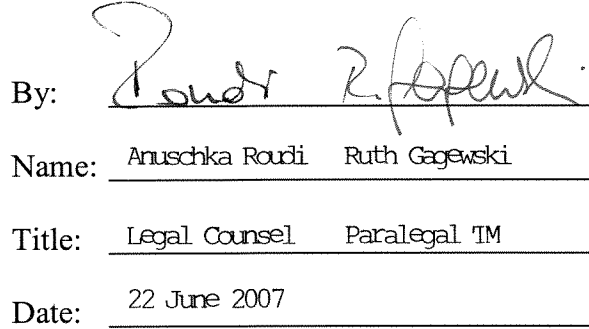 By: Roudi R. Gagewski
Name: Anuschka Roudi Ruth Gagewski
Title: Legal Counsel Paralegal TM
Date: 22 June 2007